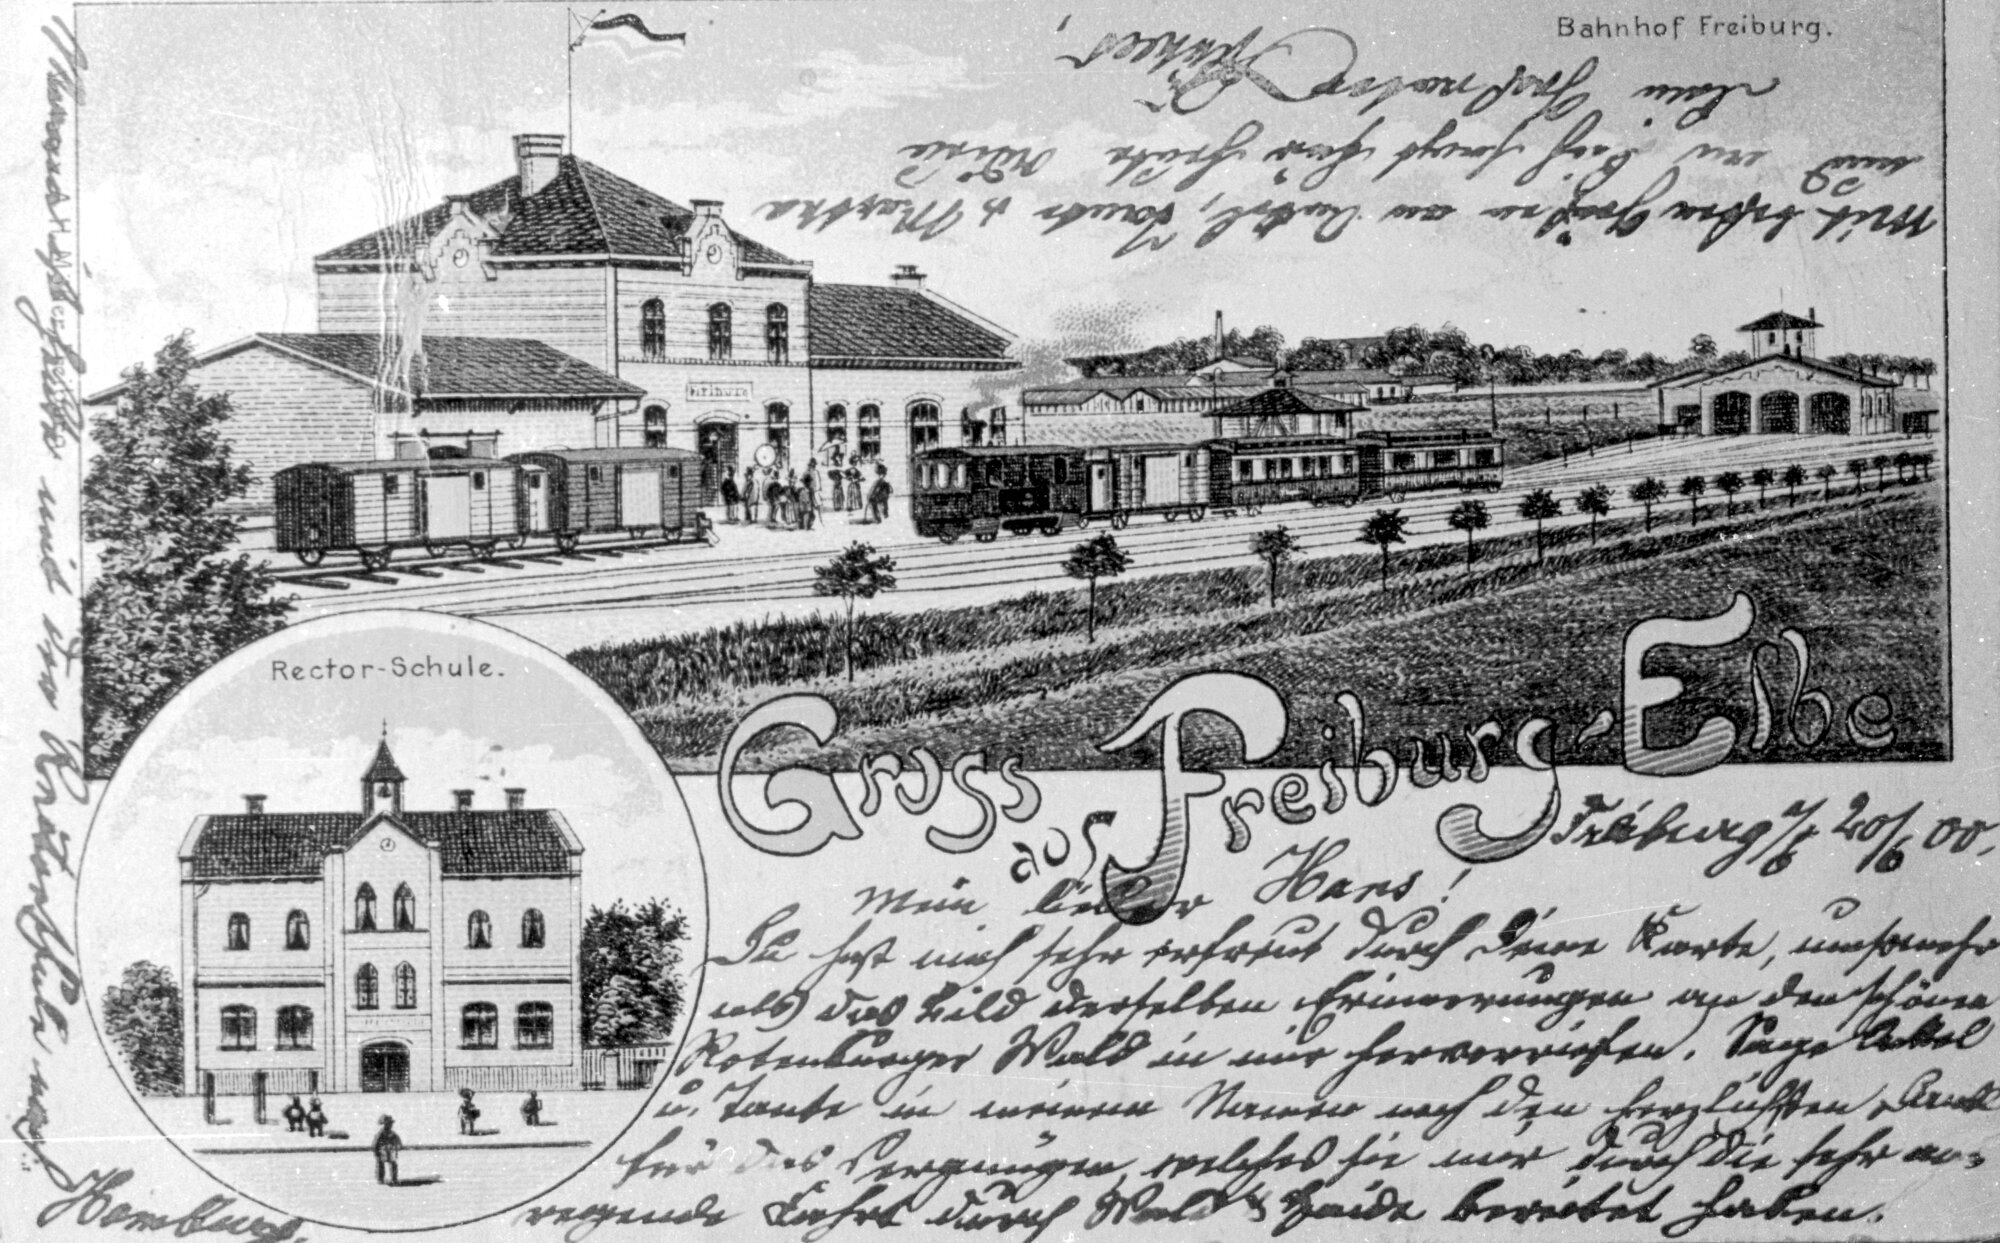 Bahnhof Freiburg.
Freiburg
Rector-Schule.
Gruss
aus Freiburg-Elbe
Freiburg 7/E 20/6 00.
Mein lieber Hans!
Du hast mich sehr erfreut durch Deine Karte, umsomehr
als das Bild derselben Erinnerungen an den schönen
Rotenburger Wald in mir hervorriefen. Sage Onkel
u. Tante in meinem Namen noch den herzlichsten Dank
für das Vergnügen, welches sie mir durch die sehr an-
regende Fahrt durch Wald & Haide bereitet haben.
mit der Rectorschule nach
Hamburg.
Mit besten Grüßen an Onkel, Tante & Martha
und an Dich
Dein Großvater